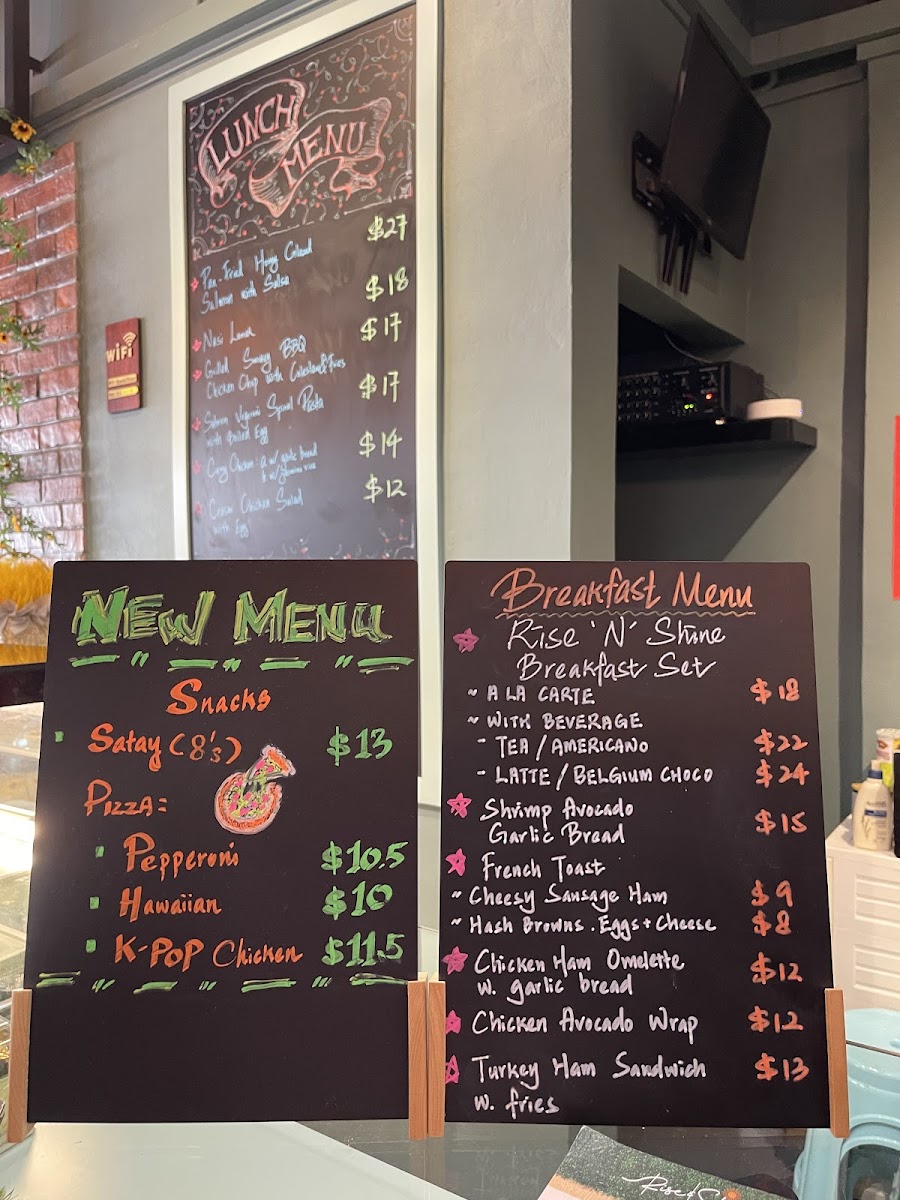 LUNCH
MENU
$27
Pan-Fried Honey Glazed
Salmon with Salsa
$18
Nasi Lemak
$17
Grilled Smokey BBQ
Chicken Chop with Coleslaw & Fries
$17
Salmon Spiral Pasta
with Boiled Egg
$14
Curry Chicken: a w/ garlic bread
b w/ Jasmine rice
$12
Chicken Salad
with Egg
WiFi
NEW MENU
Snacks
Satay (8's) $13
PIZZA:
Pepperoni $10.5
Hawaiian $10
K-POP Chicken $11.5
Breakfast Menu
Rise 'N' Shine
Breakfast Set
~ A LA CARTE $18
~ WITH BEVERAGE
- TEA / AMERICANO $22
- LATTE / BELGIUM CHOCO $24
Shrimp Avocado
Garlic Bread $15
French Toast
~ Cheesy Sausage Ham $9
~ Hash Browns . Eggs + Cheese $8
Chicken Ham Omelette
w. garlic bread $12
Chicken Avocado Wrap $12
Turkey Ham Sandwich $13
w. fries